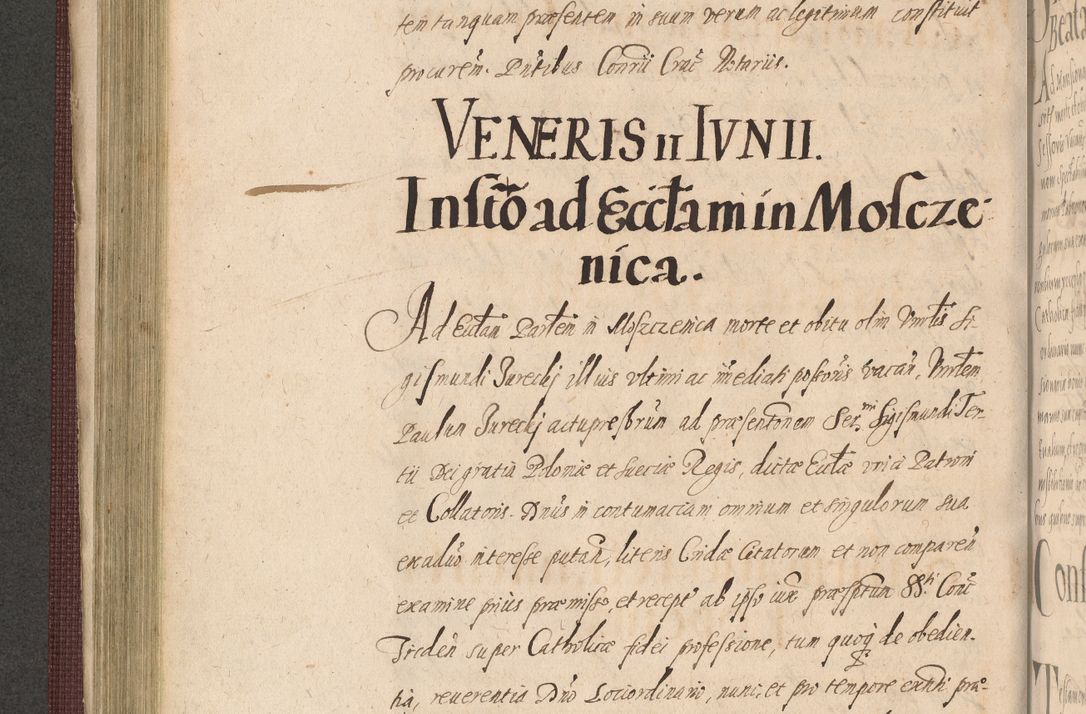 tem tanquam præsentem in suum verum ac legitimum constituit
procurem. Pntibus Conrii Crac Notariis.
VENERIS II IVNII.
Instõ ad Ecctam in Moscze-
nica.
Ad Ecctam Partem in Moszczenica morte et obitu olim Vnrtis Si-
gismundi Jurecky illius vltimi ac imediati possoris vacan, Vnrtem
Paulum Jurecky actu presbrum ad præsentonem Ser.mi Sigismundi Ter-
tii Dei gratia Poloniæ et sueciæ Regis, dictæ Ecctæ veri Patroni
et Collatoris. Dnus in contumaciam omnium et singulorum sua
interesse putan, literis Cridæ Citatorum et non comparen
examine prius præmisso, et recepto ab ipso iure præsptum SS.ti Conc
Triden super Catholicæ fidei professione, tum quoq de obedien-
tia, reuerentia Dno Lociordinario, nunc, et pro tempore extnti præ-